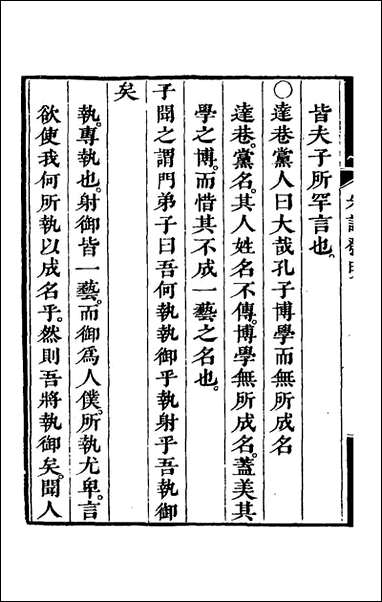 皆夫子所罕言也。
○達巷黨人曰大哉孔子博學而無所成名
達巷。黨名。其人姓名不傳。博學無所成名。蓋美其
學之博。而惜其不成一藝之名也。
子聞之謂門弟子曰吾何執執御乎執射乎吾執御
矣
執。專執也。射御皆一藝。而御爲人僕。所執尤卑。言
欲使我何所執以成名乎。然則吾將執御矣。聞人